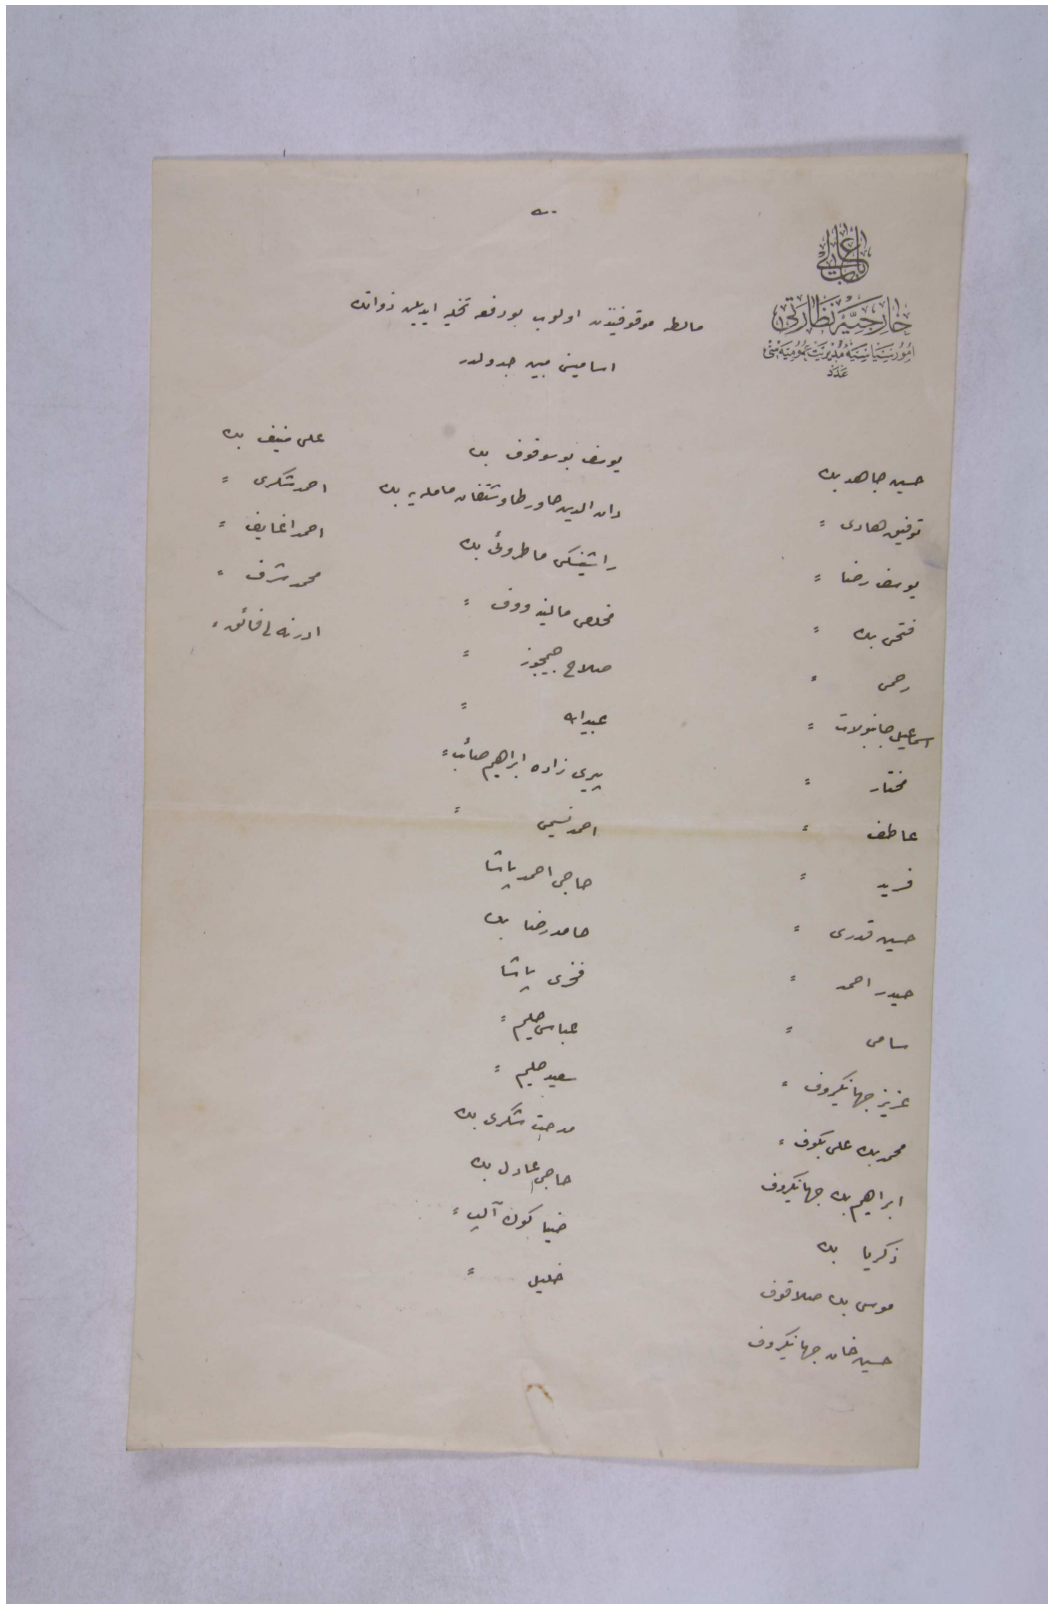 باب عالی
خارجیه نظارتی
امور سیاسیه مدیریت عمومیه سی
عدد
مالطه موقوفیندن اولوب بو دفعه تخلیه ایدیلن ذواتك
اسامیسنی مبین جدولدر
حسین جاهد بك
توفیق هادی "
یوسف رضا "
فتحی بك "
رحمی "
اسماعیل جانبولات "
مختار "
عاطف "
فرید "
حسین قدری "
حیدر احمد "
سامی "
عزیز جهانکیروف "
محمد بك علی بکوف "
ابراهیم بك جهانکیروف
ذکریا بك
موسی بك صلاقوف
حسین خان جهانکیروف
یوسف بوسوقوف بك
ماطروئی بك
مخلص "
صلاح جیمجوز "
عبیدالله "
پیری زاده ابراهیم صائب "
احمد نسیمی "
حاجی احمد پاشا
حامد رضا بك
فخری پاشا
عباس حلیم "
سعید حلیم "
مدحت شکری بك
حاجی عادل بك
ضیا كوك آلپ "
خلیل "
علی منیف بك
احمد شکری "
احمد اغایف "
محمد شرف "
ادرنه لی فائق "